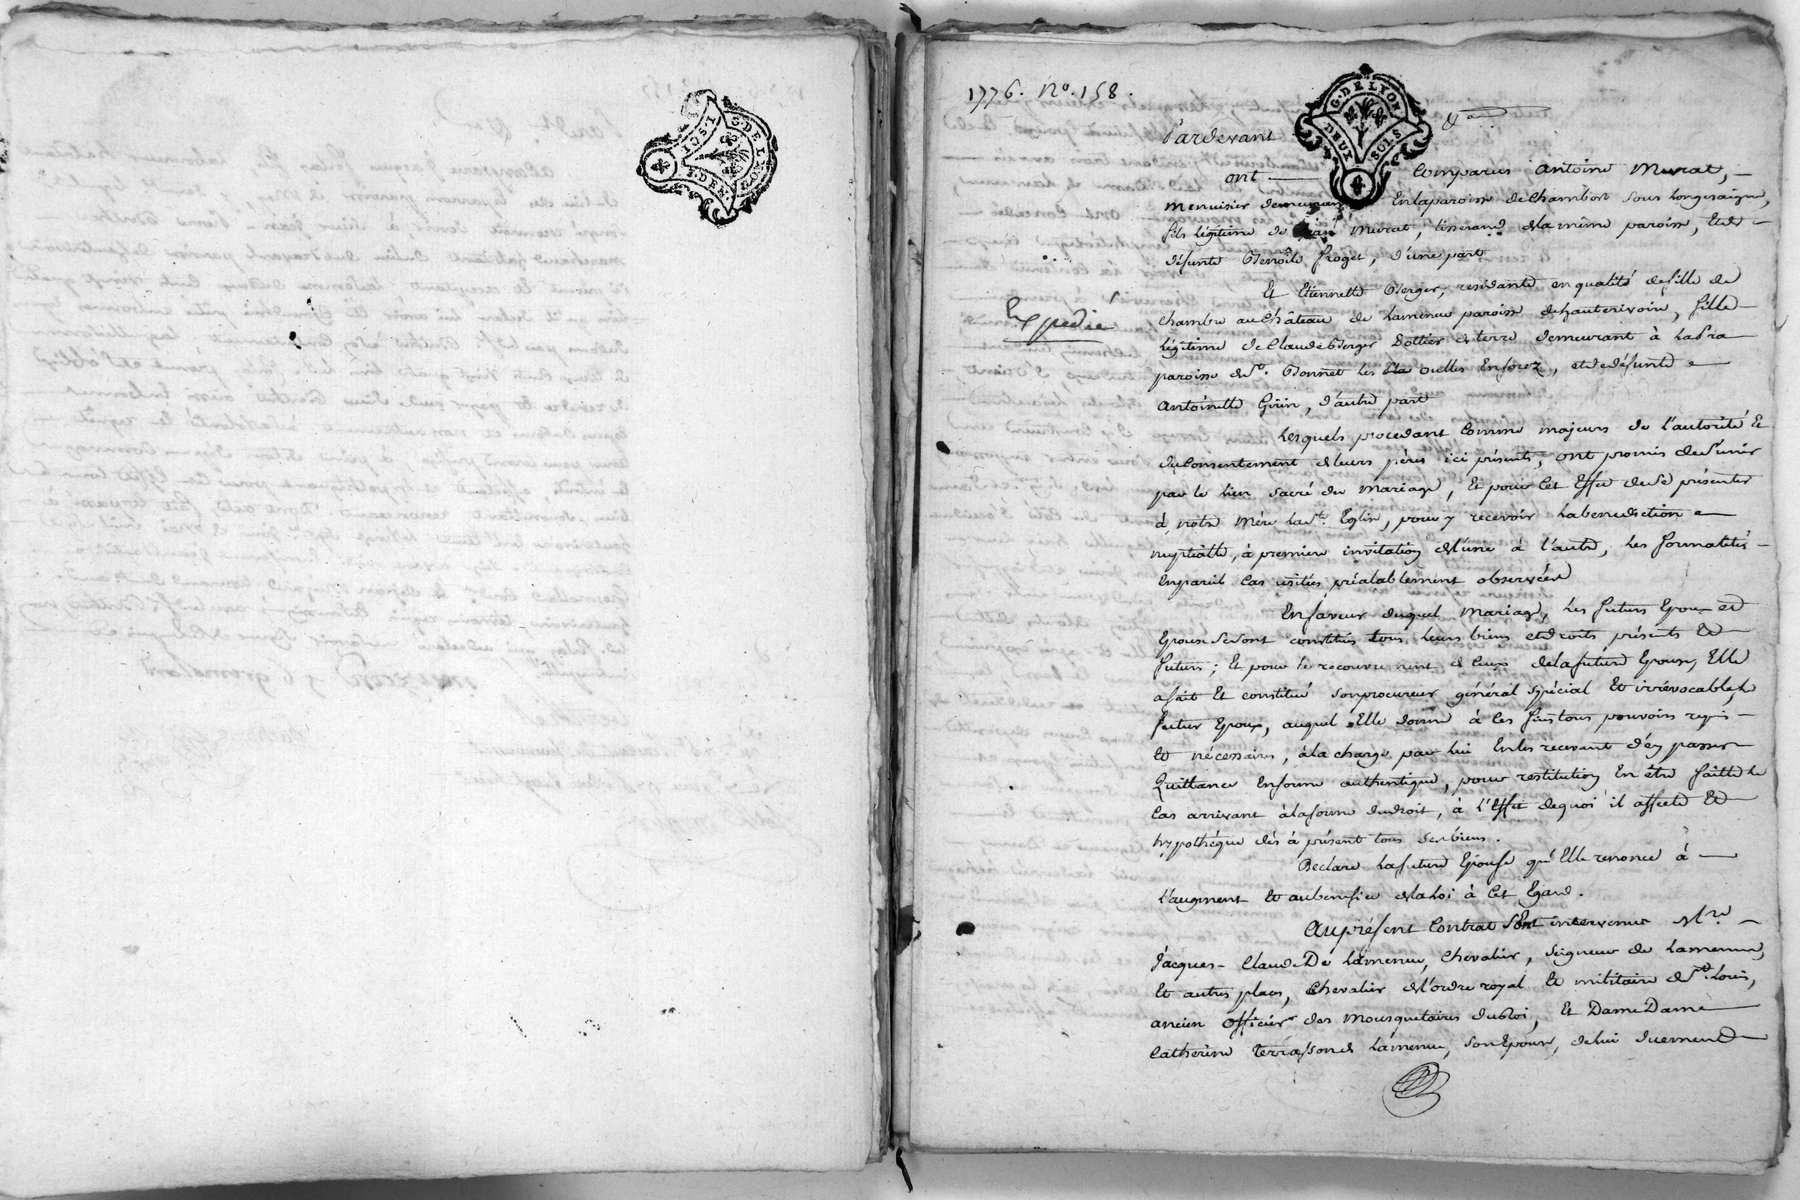 1776. No. 158.
G. DE LYON
DEUX SOLS
Pardevant &a
ont comparus Antoine Murat,
menuisier demeurant En la paroisse de Chambost sous Longesaigne,
fils légitime de Jean Murat, tisserand de la même paroisse, et de
défunte Benoîte Froget, d'une part
Et Etiennette Berger, residante en qualité de fille de
chambre au Château de Lamenue paroisse de hauterivoire, fille
légitime de Claude Berger Pottier de terre demeurant à Lafra
paroisse de St. Bonnet les Oulles En forez, et de défunte
Antoinette Girin, d'autre part
Expedié
Lesquels procedant Comme majeurs de l'autorité Et
du Consentement de leurs pères ici présents, ont promis de S'unir
par le lien sacré du Mariage, Et pour Cet Effet de Se présenter
à notre Mère La Ste. Eglise, pour y recevoir La benediction
nuptialle, à première invitation de l'une à l'autre, Les formalités
En pareil Cas usitées préalablement observées
En faveur duquel Mariage, Les futurs Epoux et
Epouse se sont constitués tous leurs biens et droits présents Et
futurs; Et pour le recouvrement de Ceux de la future Epouse, Elle
a fait Et constitué son procureur général spécial Et irrévocable, le
futur Epoux, auquel Elle donne à Ces fins tous pouvoirs requis
Et nécessaires, à la charge par lui En les recevant d'en passer
Quittance En forme authentique, pour restitution En être faitte le
Cas arrivant à la forme du droit, à L'Effet de quoi il affecte Et
hypothéque dès à présent tous Ses biens.
Declare La future Epouse qu'Elle renonce à
L'augment Et au benefice de la loi à Cet Egard.
Au présent Contrat Sont intervenus Mre.
Jacques-Claude De Lamenue, Chevalier, Seigneur de Lamenue,
Et autres places, Chevalier de l'ordre royal Et militaire de St. Louis,
ancien officier des Mousquetaires du Roi, Et Dame Dame
Catherine Terrasson de Lamenue, Son Epouse, de lui duement